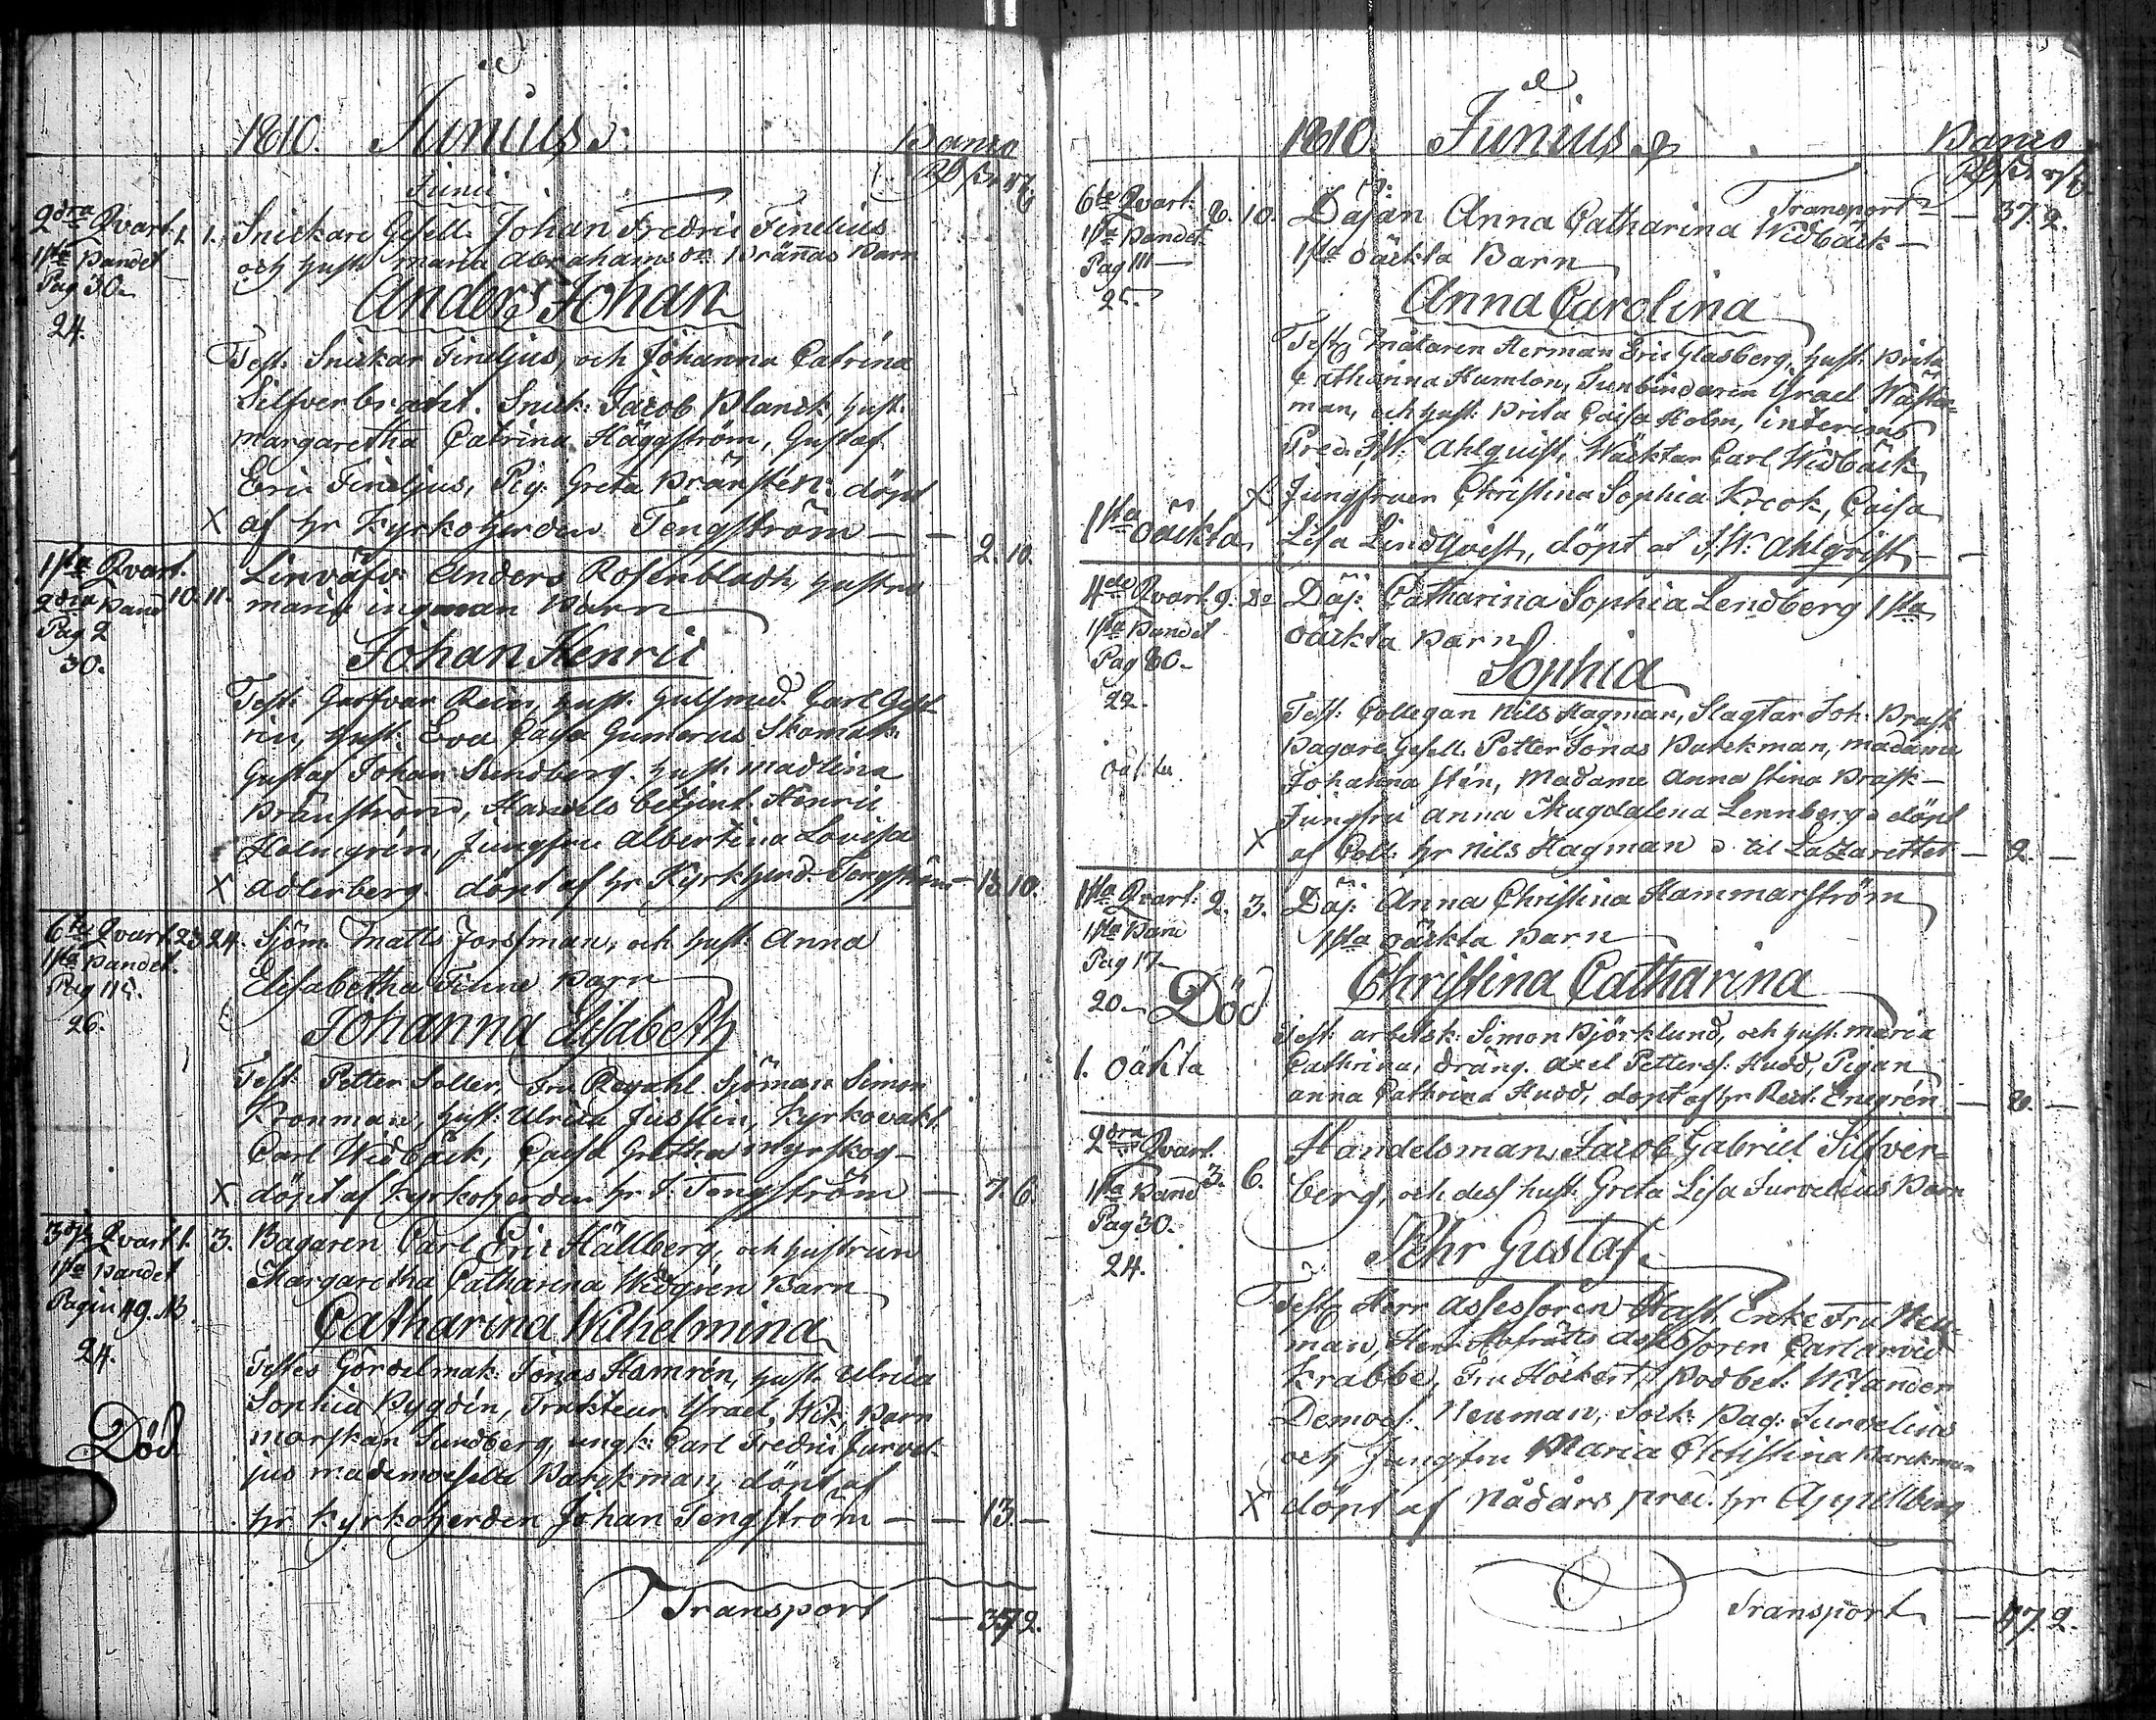 1810. Junius.
Banco
Junii
2dra Qvart. 1. 1. Snickare Gesell. Johan Fredric Finelius
1sta Bandet och hust. Maria Abrahamsdr Brännas Barn
Pag 30.
24.
Anders Johan
Test: Snickar Fineljus, och Johanna Catrina
Silfverbrant. Snick: Jacob Planck, hust.
Margaretha Catrina Häggström, Gustaf
Eric Fineljus, Pig: Greta Bränstén: döpt
X af hr Kyrkoherden Tengström — — 2. 10.
1sta Qvart. 10. 11. Linväfv: Anders Rosenbladh, hustru
2dra Band Maria Ingman Barn
Pag 2
30.
Johan Henric
Test: Garfvar Rein, hust. Gulsmed. Carl
hust: Eva Caisa Gumerus Skomak:
Gustaf Johan Sundberg. hust. Madlina
Bränström, Handels betjent. Henric
Holmgrén, Jungfru Albertina Lovisa
X Adlerberg döpt af hr Kyrkherd. Tengström — 13. 10.
6te Qvart. 23. 24. Sjöm. Matts Forssman, och hust. Anna
1sta Bandet. Elisabetha Finne Barn
Pag 115.
26.
Johanna Elisabeth
Test: Petter Soller, Fru Sjöman Simon
Kronman, hust: Ulrica Juslin, Kyrkovakt:
Carl Widbäck, Caisa Gretha Myrskog —
X döpt af Kyrkoherden hr J: Tengström — 7. 6.
3dje Qvart. 1. 3. Bagaren Carl Eric Hällberg, och hustrun
1sta Bandet Margaretha Catharina Widgrén Barn
Pagin 49.
24.
Catharina Wilhelmina
Testes Gördelmak: Jonas Hamrén, hust. Ulrica
Sophia Bygdén, Trakteur Israel Wik, Barn
Död morskan Sundberg, ungk: Carl Fredric Jurvel-
jus mademoiselle Barckman, döpt af
hr Kyrkoherden Johan Tengström — — 13. —
Transport — 37. 2.
1810. Junius
Banco
Transport — — 37. 2.
6te Qvart: 8. 10. Däjan Anna Catharina Widbäck —
1sta Bandet 1sta oäckta Barn
Pag 111 —
25.
Anna Carolina
Test: Målaren Herman Eric Glasberg, hust: Brita
Catharina Humlon, Tunbindaren Israel Wäster-
man, och hust: Brita Caisa Holm, interims
Pred: J.W: Ahlquist, Wäcktar Carl Widbäck
Jungfruer Christina Sophia Krook, Caisa
1sta oäckta Lisa Lindqvist, döpt af J.W: Ahlqvist — —
4de Qvart. 9. Däj: Catharina Sophia Lendberg 1sta
1sta Bandet oäckta Barn
Pag 80.
22.
Sophia
Test: Collegan Nils Hagman, Slagtar Joh: Brask
Bagare Gesell. Petter Jonas Barckman, Madame
Johanna Stén, Madame Anna Stina Brask —
Jungfru Anna Magdalena Lennberg döpt
X af Coll: hr Nils Hagman til Lazarettet — 2. —
1sta Qvart: 2. 3. Däj: Anna Christina Hammarström
1sta Band 1sta oäckta Barn
Pag 17.
20. Död
Christina Catharina
Test: arbetsk: Simon Björklund, och hust: Maria
1. Oäkta Cathrina, Dräng. Axel Petterss: Hudd, Pigan
Anna Cathrina Hudd, döpt af hr Rect. Enegrén — 8. —
2dra Qvart. 3. 6. Handelsman Jacob Gabriel Silfver-
1sta Band berg, och dess hust. Greta Lisa Jurvelius Barn
Pag 30.
24.
Pehr Gustaf
Test: Herr Assessoren Enke Fru Neu-
man, Herr Hofrätts Assessoren Carl Arvid
Krabbe, Fru Höckert, Bodbet: Wilander
Demois: Neuman, Sock: Bag: Jurvelius
och Jungfru Maria Christina Barckman
X döpt af Nådårs pred. hr Appellberg
Transport — 47. 2.